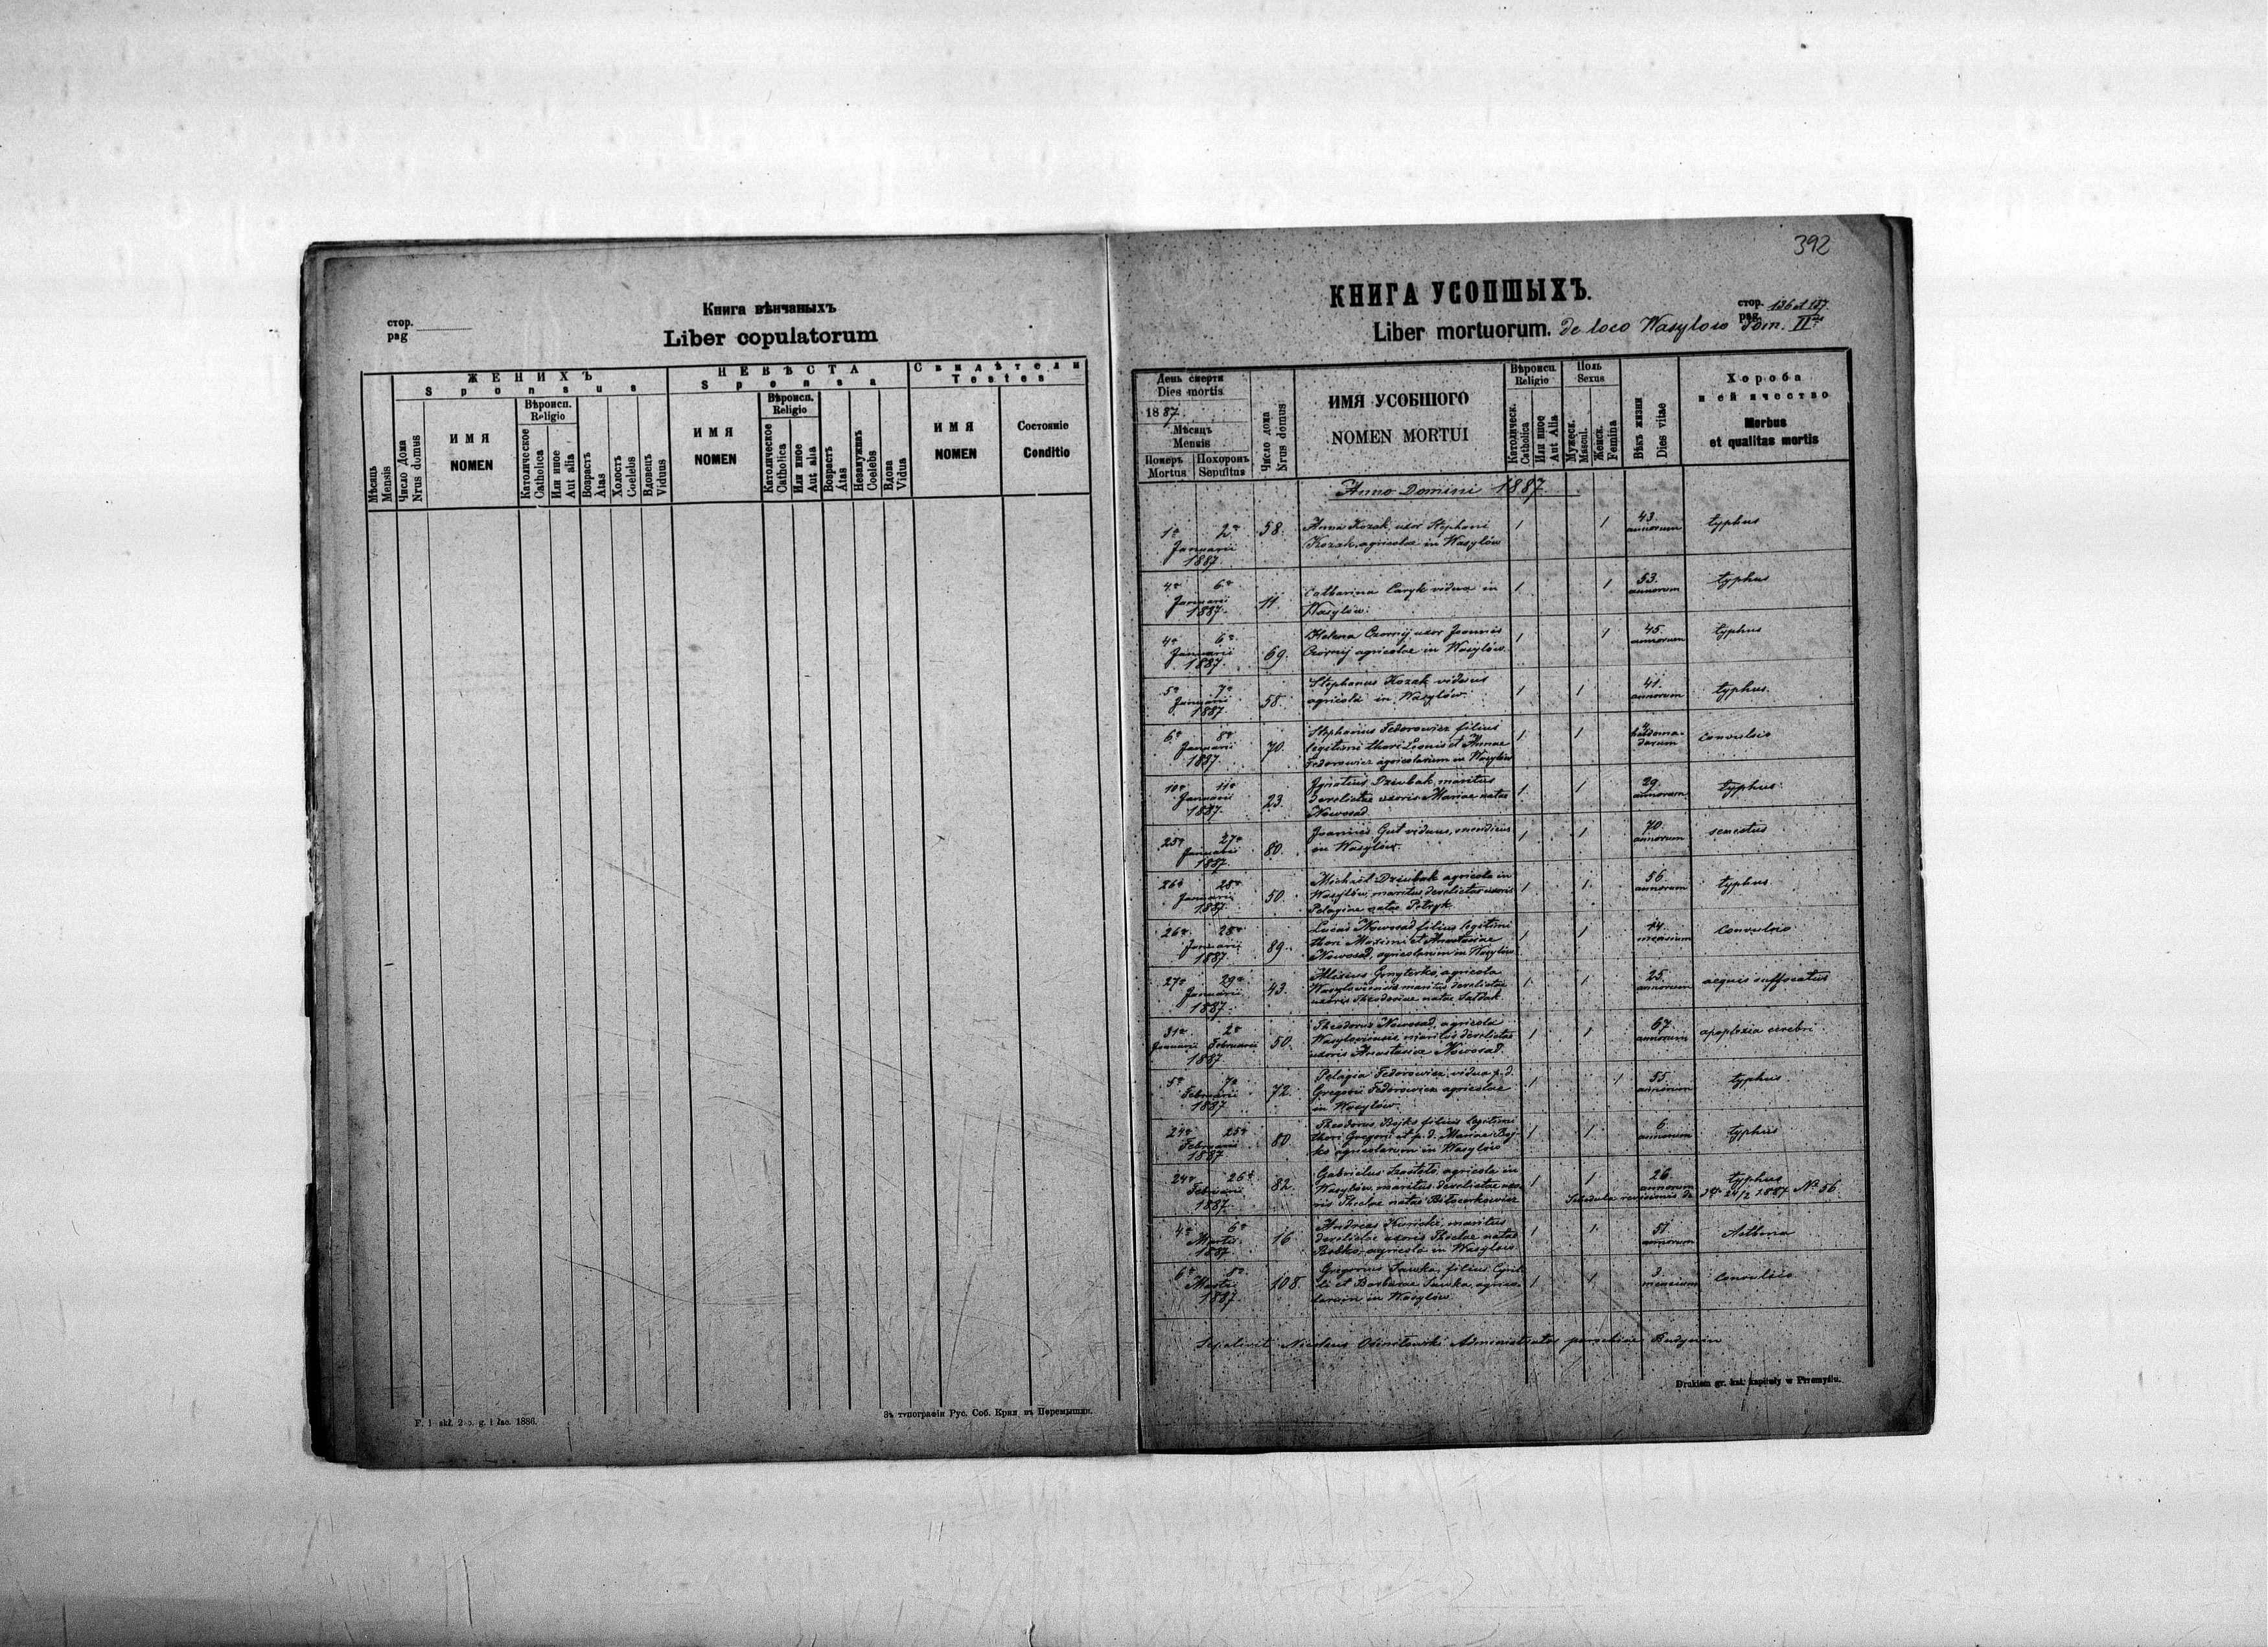 Книга вѣнчаныхъ
стор.
pag
Liber copulatorum
ЖЕНИХЪ
Sponsus
НЕВѢСТА
Sponsa
Свидѣтели
Testes
Мѣсяць
Mensis
Число Дома
Nrus domus
ИМЯ
NOMEN
Вѣроисп.
Religio
Католическое
Catholica
Или иное
Aut alia
Возрастъ
Atas
Холость
Coelebs
Вдовець
Viduus
ИМЯ
NOMEN
Вѣроисп.
Religio
Католическое
Catholica
Или иное
Aut alia
Возрастъ
Atas
Незамужнъ
Coelebs
Вдова
Vidua
ИМЯ
NOMEN
Состояніе
Conditio
Зъ типографіи Рус. Соб. Крил въ Перемышли.
392
КНИГА УСОПШЫХЪ.
стор. 136 et 137.
pag.
Liber mortuorum. de loco Wasylow Tom. II
День смерти
Dies mortis
1887.
Мѣсяць
Mensis
Померъ
Mortus
Похоронъ
Sepultus
Число дома
Nrus domus
ИМЯ УСОБШОГО
NOMEN MORTUI
Вѣроисп.
Religio
Католическ.
Catholica
Или иное
Aut Alia
Поль
Sexus
Мужеск.
Mascul.
Женск.
Femina
Вѣкъ жизни
Dies vitae
Хороба
и ей ячество
Morbus
et qualitas mortis
Anno Domini 1887.
1a 2a 58. Anna Kozak, uxor Stephani 1 1 43. annorum typhus
Januarii Kozak, agricolae in Wasylów
1887.
4a 6a 11. Catharina Caryk vidua in 1 1 53. annorum typhus
Januarii Wasylów.
1887.
4a 6a 69. Helena Czornij uxor Joannis 1 1 45. annorum typhus
Januarii Czornij agricolae in Wasylów.
1887.
5a 7a 58. Stephanus Kozak viduus 1 1 41. annorum typhus.
Januarii agricola in Wasylów.
1887.
6a 8a 70. Stephanus Fedorowicz filius 1 1 hebdomadarum convulsio
Januarii legitimi thori Leonis et Annae
1887. Fedorowicz agricolarum in Wasylów
10a 11a 23. Ignatius Dziubak, maritus 1 1 29. annorum typhus.
Januarii derelictae uxoris Mariae natae
1887. Nowosad.
25a 27a 80. Joannes Gut viduus, mendicus 1 1 70. annorum senectus
Januarii in Wasylów.
1887.
26a 28a 50. Michael Dziubak agricola in 1 1 56. annorum typhus
Januarii Wasylów, maritus derelictae uxoris
1887. Pelagiae natae Petryk.
26a 28a 89. Lucas Nowosad filius legitimi 1 1 14. mensium Convulsio
Januarii thori Maximi et Anastasiae
1887. Nowosad, agricolarum in Wasylów
27a 29a 43. Alexius agricola 1 1 25. annorum aequis suffocatus
Januarii Wasyloviensis maritus derelictae
1887. uxoris Theodoriae natae
31a 2a 50. Theodorus Nowosad, agricola 1 1 67. annorum apoplexia cerebri
Januarii Februarii Wasyloviensis, maritus derelictae
1887 uxoris Anastasiae Nowosad.
5a 7a 72. Pelagia Fedorowicz, vidua p. d. 1 1 55. annorum typhus.
Februarii Gregorii Fedorowicz agricolae
1887 in Wasylów.
24a 25a 80. Theodorus Bojko filius legitimi 1 1 6. annorum typhus
Februarii thori Gregorii et p. d. Mariae Boj-
1887 ko agricolarum in Wasylów
24a 26a 82. Gabrielus agricola in 1 1 26. annorum typhus
Februarii Wasylów, maritus derelictae uxo- Schedula revisionis de 24/2 1887 No 56
1887. ris Theclae natae
4a 6a 16 Andreas Kunicki, maritus 1 1 51 annorum Asthma
Martii derelictae uxoris Theclae natae
1887. Bobko, agricola in Wasylów.
6a 8a 108 Gregorius Sawka, filius Cyril- 1 1 3 mensium Convulsio
Martii li et Barbarae Sawka, agrico-
1887. larum in Wasylów.
Sepelivit Nicolaus Administrator parochiae Budynin
Drukiem gr. kat. kapituły w Przemyślu.